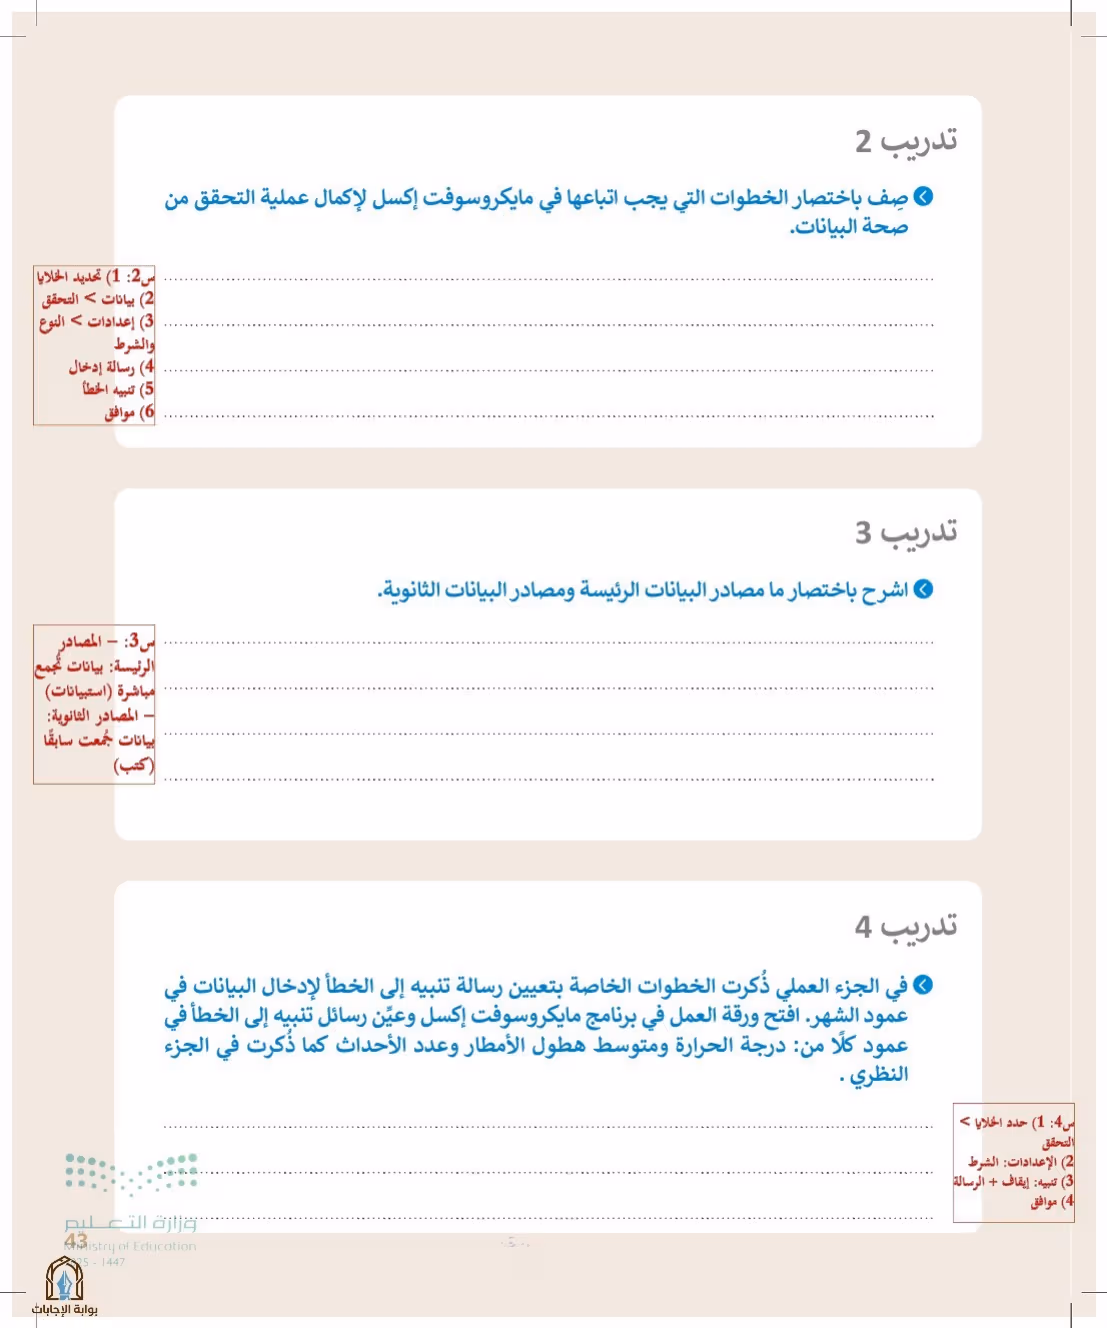 تدريب 2
صِف باختصار الخطوات التي يجب اتباعها في مايكروسوفت إكسل لإكمال عملية التحقق من
صحة البيانات.
س2: 1) تحديد الخلايا
2) بيانات > التحقق
3) إعدادات > النوع
والشرط
4) رسالة إدخال
5) تنبيه الخطأ
6) موافق
تدريب 3
اشرح باختصار ما مصادر البيانات الرئيسة ومصادر البيانات الثانوية.
س3: – المصادر
الرئيسة: بيانات تُجمع
مباشرة (استبيانات)
– المصادر الثانوية:
بيانات جُمعت سابقًا
(كتب)
تدريب 4
في الجزء العملي ذُكرت الخطوات الخاصة بتعيين رسالة تنبيه إلى الخطأ لإدخال البيانات في
عمود الشهر. افتح ورقة العمل في برنامج مايكروسوفت إكسل وعيِّن رسائل تنبيه إلى الخطأ في
عمود كلًا من: درجة الحرارة ومتوسط هطول الأمطار وعدد الأحداث كما ذُكرت في الجزء
النظري .
س4: 1) حدد الخلايا >
التحقق
2) الإعدادات: الشرط
3) تنبيه: إيقاف + الرسالة
4) موافق
وزارة التعليم
43
Ministry of Education
2025 - 1447
بوابة الإجابات